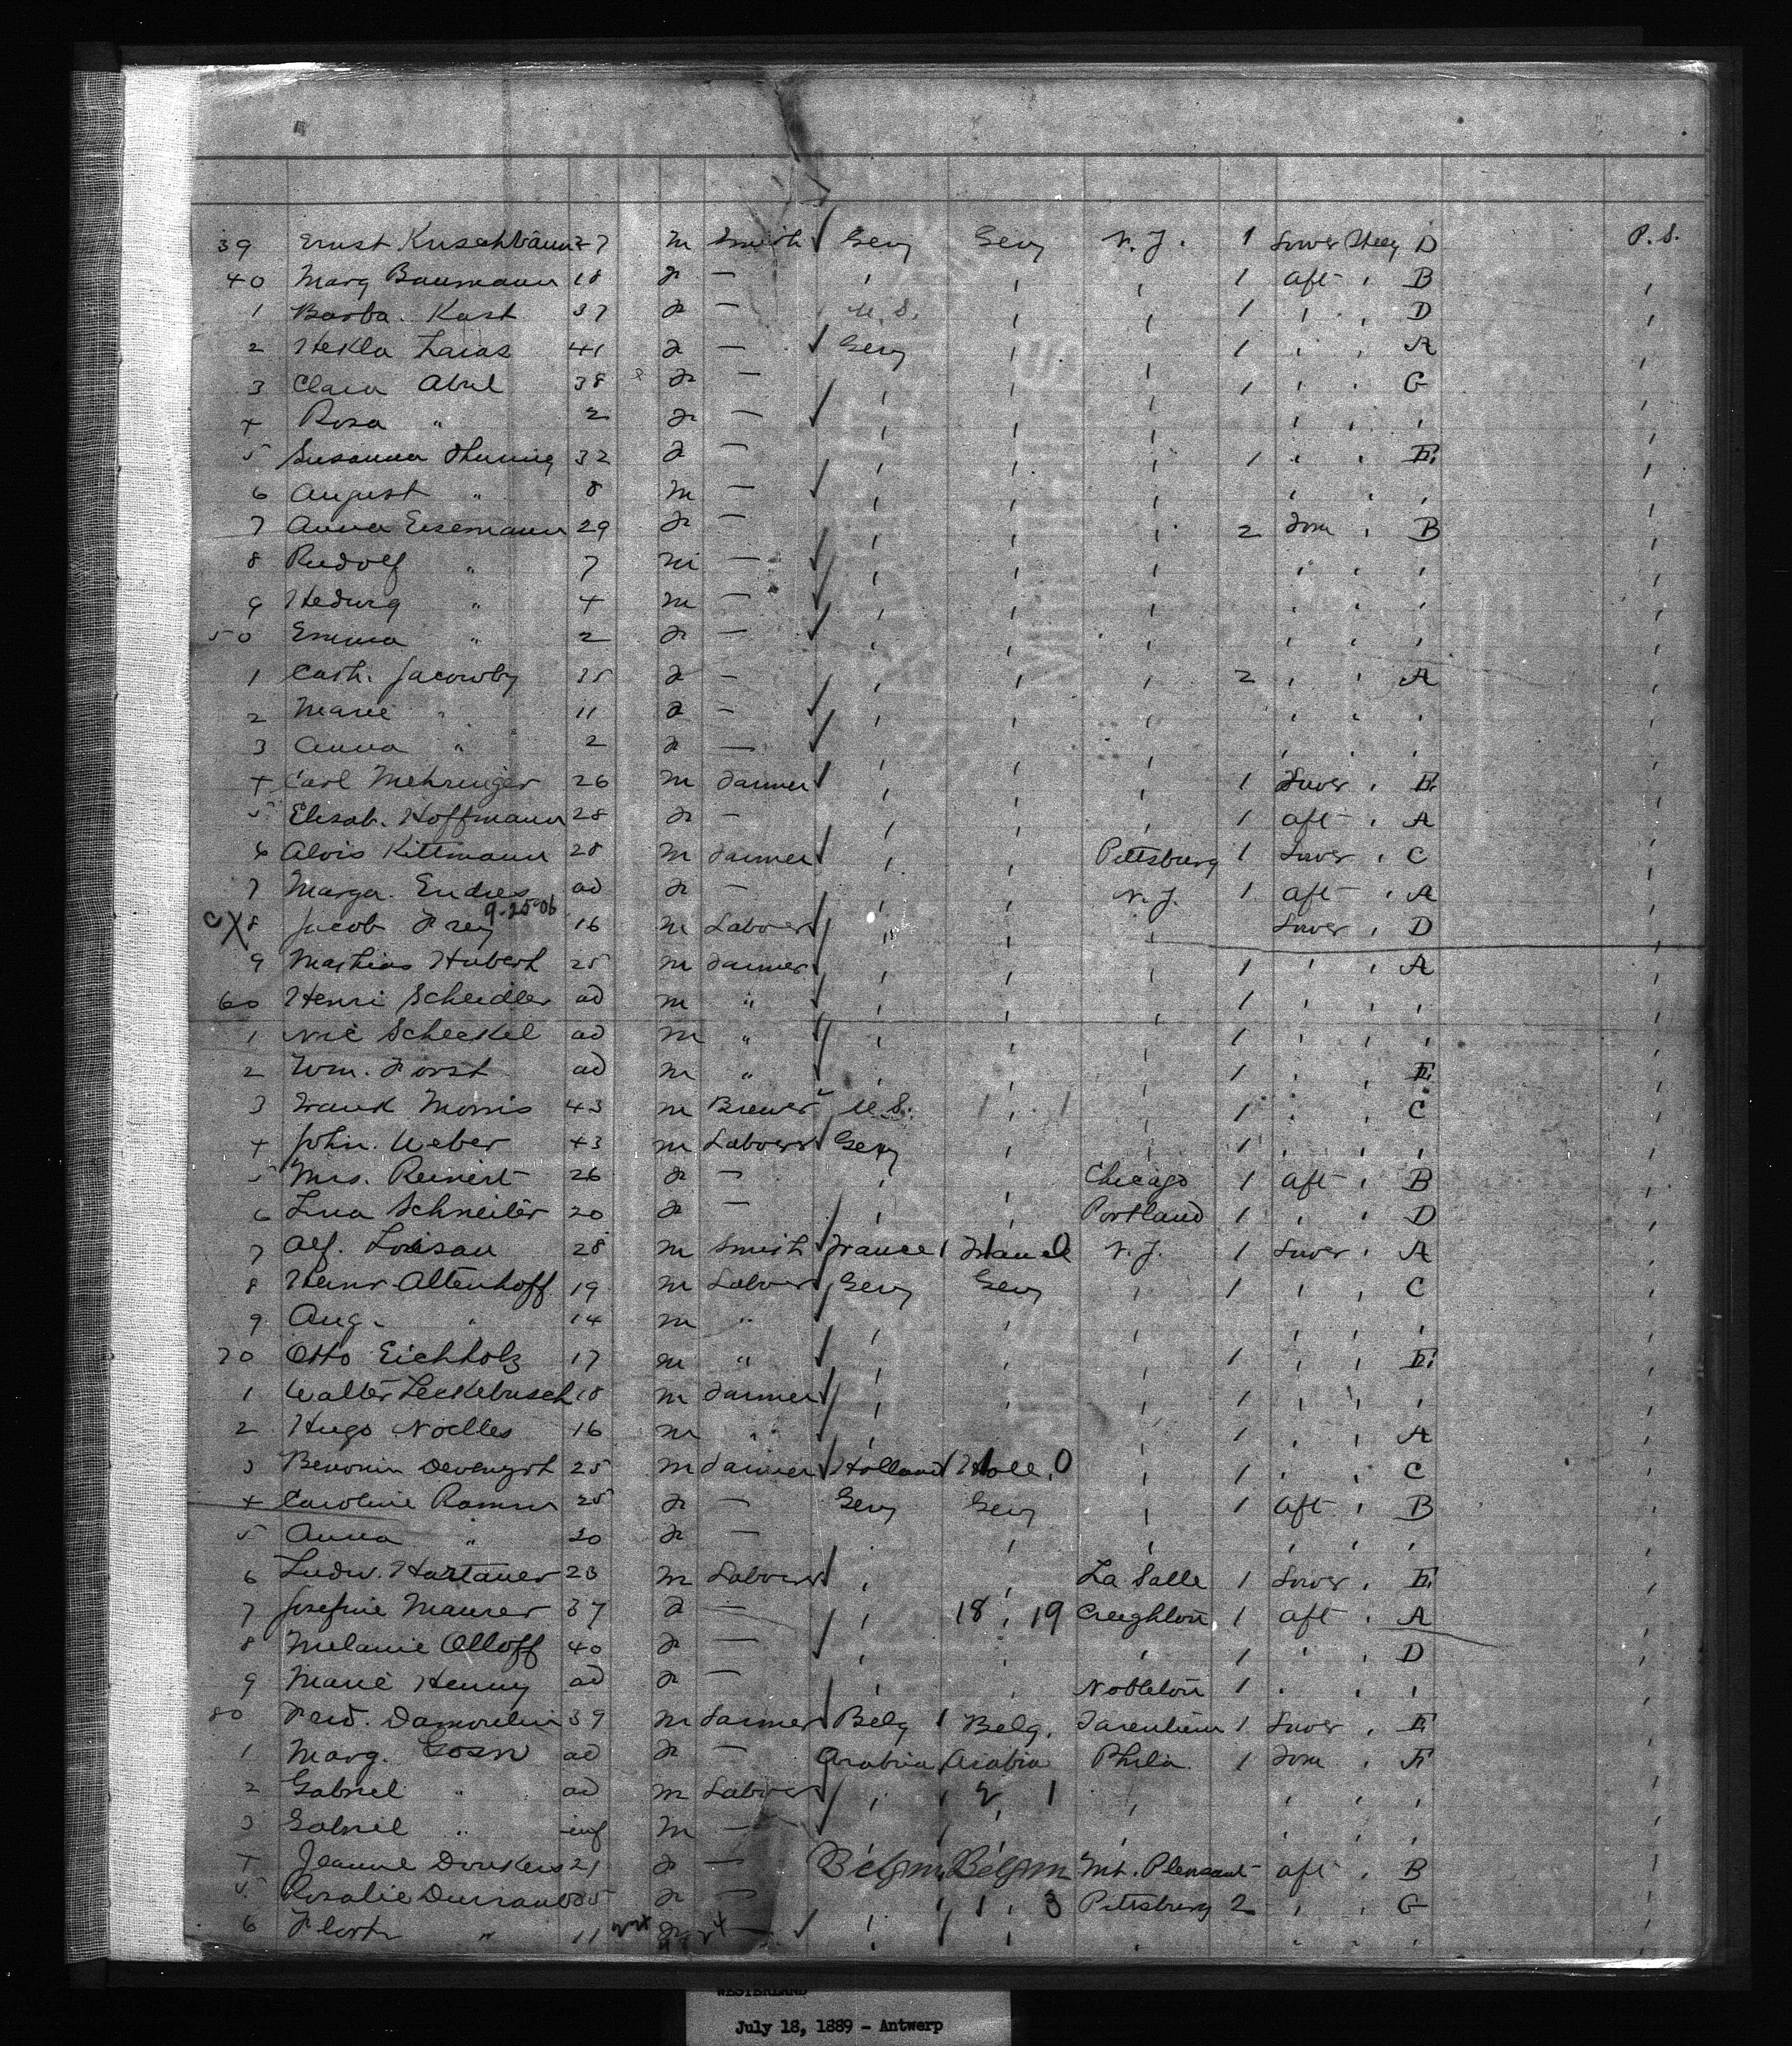 39 Ernst Kirschbaum 27 m Smith Gery Gery N. Y. 1 Lower Steeg D P. S.
40 Marg Baumann 18 f — " " " 1 aft " B "
1 Barba. Kast 37 f — U. S. " " 1 " " D "
2 Hekla 41 f — Gery " " 1 " " A "
3 Clara Abel 38 f — " " " 1 " " G "
4 Rosa " 2 f — " " " " " " "
5 Susanna 32 f — " " " 1 " " E "
6 August " 8 m — " " " " " " "
7 Anna Eisemann 29 f — " " " 2 Fore " B "
8 Rudolf " 7 m — " " " " " " "
9 Hedwig " 4 m — " " " " " " "
50 Emma " 2 f — " " " " " " "
1 Cath. Jacowby 35 f — " " " 2 " " A "
2 Marie " 11 f — " " " " " " "
3 Anna " 2 f — " " " " " " "
4 Carl Mehringer 26 m Farmer " " " 1 Lower " E "
5 Elisab. Hoffmann 28 f — " " " 1 aft " A "
6 Alois Kittmann 28 m Farmer " " Pittsburg 1 Lower " C "
7 Marga. Endres ad f — " " N. Y. 1 aft " A "
CX 8 Jacob Frey 9-25-06 16 m Laborer " " " Lower " D "
9 Mathias Hubert 25 m Farmer " " " 1 " " A "
60 Henri Scheidler ad m " " " " 1 " " " "
1 Nic Scheckel ad m " " " " 1 " " " "
2 Wm. Forst ad m " " " " 1 " " E "
3 Frank Morris 43 m Brewer U. S. " " 1 " " C "
4 John. Weber 43 m Laborer Gery " " 1 " " " "
5 Mrs. Reinert 26 f — " " Chicago 1 aft " B "
6 Lina Schneider 20 f — " " Portland 1 " " D "
7 Alf. Loisau 28 m Smith France France N. Y. 1 Lower " A "
8 Heinr Altenhoff 19 m Laborer Gery Gery " 1 " " C "
9 Aug. " 14 m " " " " " " " "
70 Otto Eichholz 17 m " " " " 1 " " E "
1 Walter Leckebusch 18 m Farmer " " " 1 " " " "
2 Hugo Noelles 16 m " " " " 1 " " A "
3 25 m Farmer Holland Holl. 0 " 1 " " C "
4 Caroline 25 f — Gery Gery " 1 aft " B "
5 Anna " 20 f — " " " " " " "
6 Ludw. Hartauer 23 m Laborer " " La Salle 1 Lower " E "
7 Josefine Maurer 37 f — " 18 " 19 Creighton 1 aft " A "
8 Melanie Olloff 40 f — " " " 1 " " D "
9 Marie Henny ad f — " " Nobleton 1 " " " "
80 Ferd. Damoulin 39 m Farmer Belg Belg. 1 Lower " E "
1 Marg. Gosn ad f — Arabia Arabia Phila. 1 Fore " F "
2 Gabriel " ad m Laborer " 2 1 " " " " "
3 Gabriel " inf m — " " " " " " "
4 Jeanne Donkers 21 f — Belgm Belgm Mt. Pleasant aft " B "
5 Rosalie 35 f — " 1 " 3 Pittsburg 2 " " G "
6 " 11 f — " " " " " " "
WESTERLAND
July 18, 1889 - Antwerp